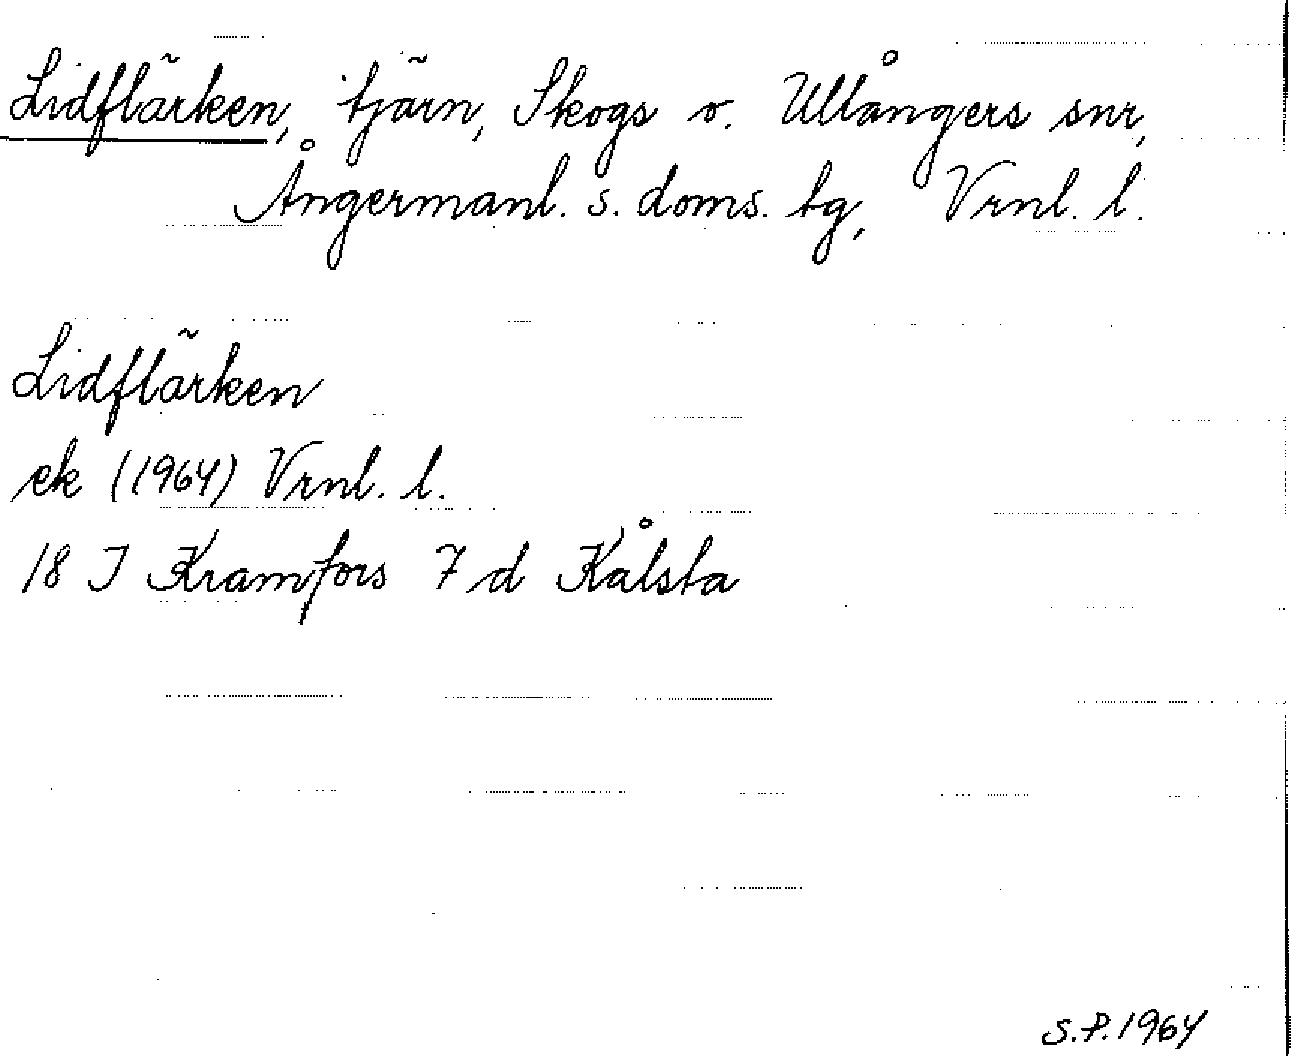 Lidflärken, tjärn, Skogs o. Ullångers snr,
Ångermanl. s. doms. tg, Vrnl. l.
Lidflärken
ek (1964) Vrnl. l.
18 I Kramfors 7 d Kålsta
S.P. 1964